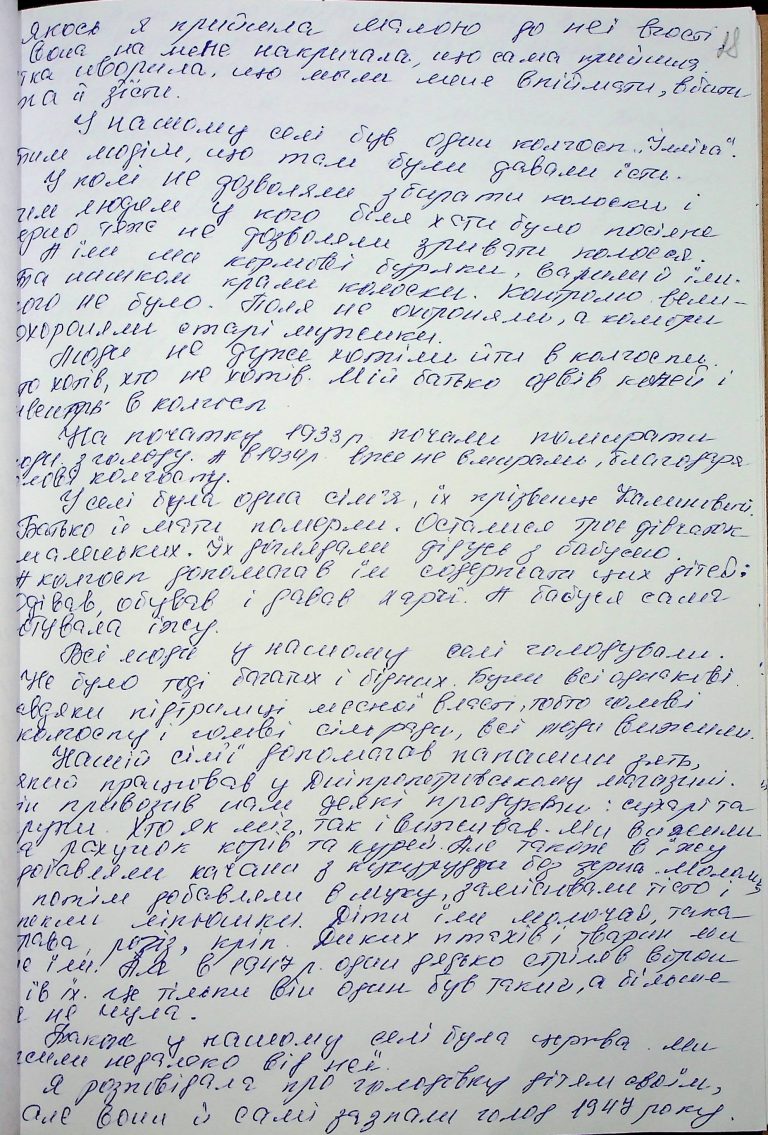 якось я прийшла мамою до неї вгості
Вона на мене накричала, що сама прийшла 28
тка иворила, що мыли мене впіймати, вбити
та й зісти.
У нашому селі був один колгосп „Ілліча".
тим людім, що там були давали їсти.
У полі не дозволяли збирати колоски і
тим людем у кого біля хати було посіяне
ерно теж не дозволяли зривати колосся.
А їли ми кормові буряки, варили й їли.
Та нишком крали колоски. Контролю вели-
ого не було. Поля не охороняли, а комори
охороняли старі мужики.
Люди не дуже хотіли йти в колгоспи.
то хотів, хто не хотів. Мій батько одвів коней і
в колгосп
На початку 1933 р. почали помирати
юди з голоду. А в 1934 р. вже не вмирали, благодаря
голові колгоспу.
У селі була одна сім'я, їх прізвище Калиневичі.
Батько й мати померли. Осталися троє дівчаток
маленьких. Їх доглядали дідусь з бабусею.
А колгосп допомагав їм содержати цих дітей:
одівав, обував і давав харчі. А бабуся сама
отувала їжу.
Всі люди у нашому селі голодували.
Не було тоді багатих і бідних. Були всі однакові.
авдяки підтримці месної власті, тобто голові
колгоспу і голові сільради, всі люди вижили.
Нашій сім'ї допомагав папашин зять,
який працював у Дніпропетрівському магазині.
ін привозив нам деякі продукти: сухарі та
крупи. Хто як міг, так і виживав. Ми вижили
а рахунок корів та курей. Але також в їжу
добавляли качани з кукурудзи без зерна. Мололи
потім добавляли в муку, замішували тісто і
пекли ліпюшки. Діти їли молочай, така
трава, рогіз, кріп. Диких птахів і тварин ми
не їли. Але в 1947 р. один дядько стріляв ворон
і їв їх. Це тільки він один був такий, а більше
я не чула.
Також у нашому селі була церква. Ми
жили недалеко від неї.
Я розповідала про голодівку дітям своїм,
але вони й самі зазнали голод 1947 року.